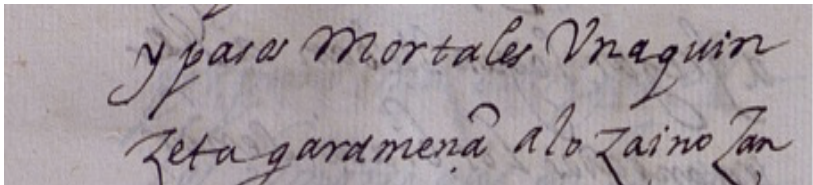 y pasos Mortales Vnaquin
Zeta gardmena alo Zaino Zan